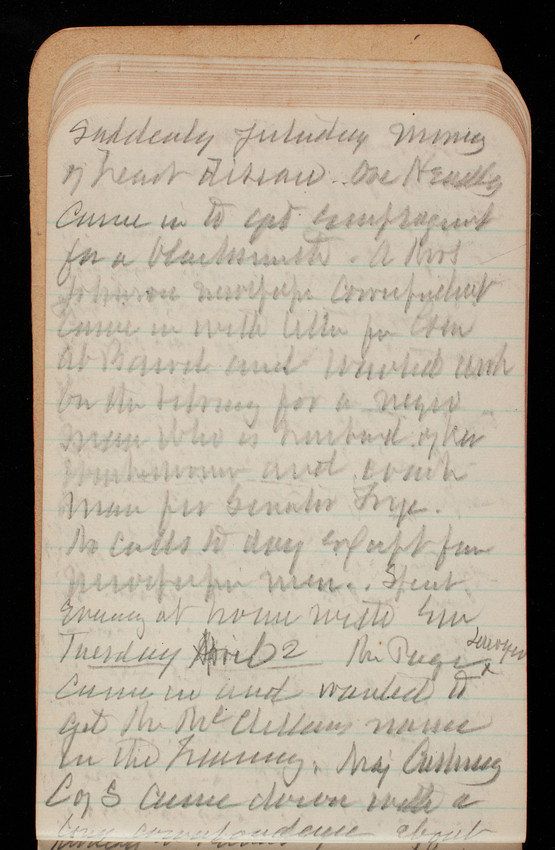 Suddenly Saturday morning
of heart disease. One Headley
came in to get employment
for a blacksmith. A Mrs
Johnson newspaper correspondent
came in with letter for Gen
and wanted work
on the for a negro
man who is husband of her
and coach
man for Senator Frye.
No calls to day except from
newspaper men. Spent
Evening at home with Em
Tuesday April 2 Mr Page lawyer x
came in and wanted to
get Mr McClellans name
in the Maj Cushing
C of S came down with a
long correspondence about